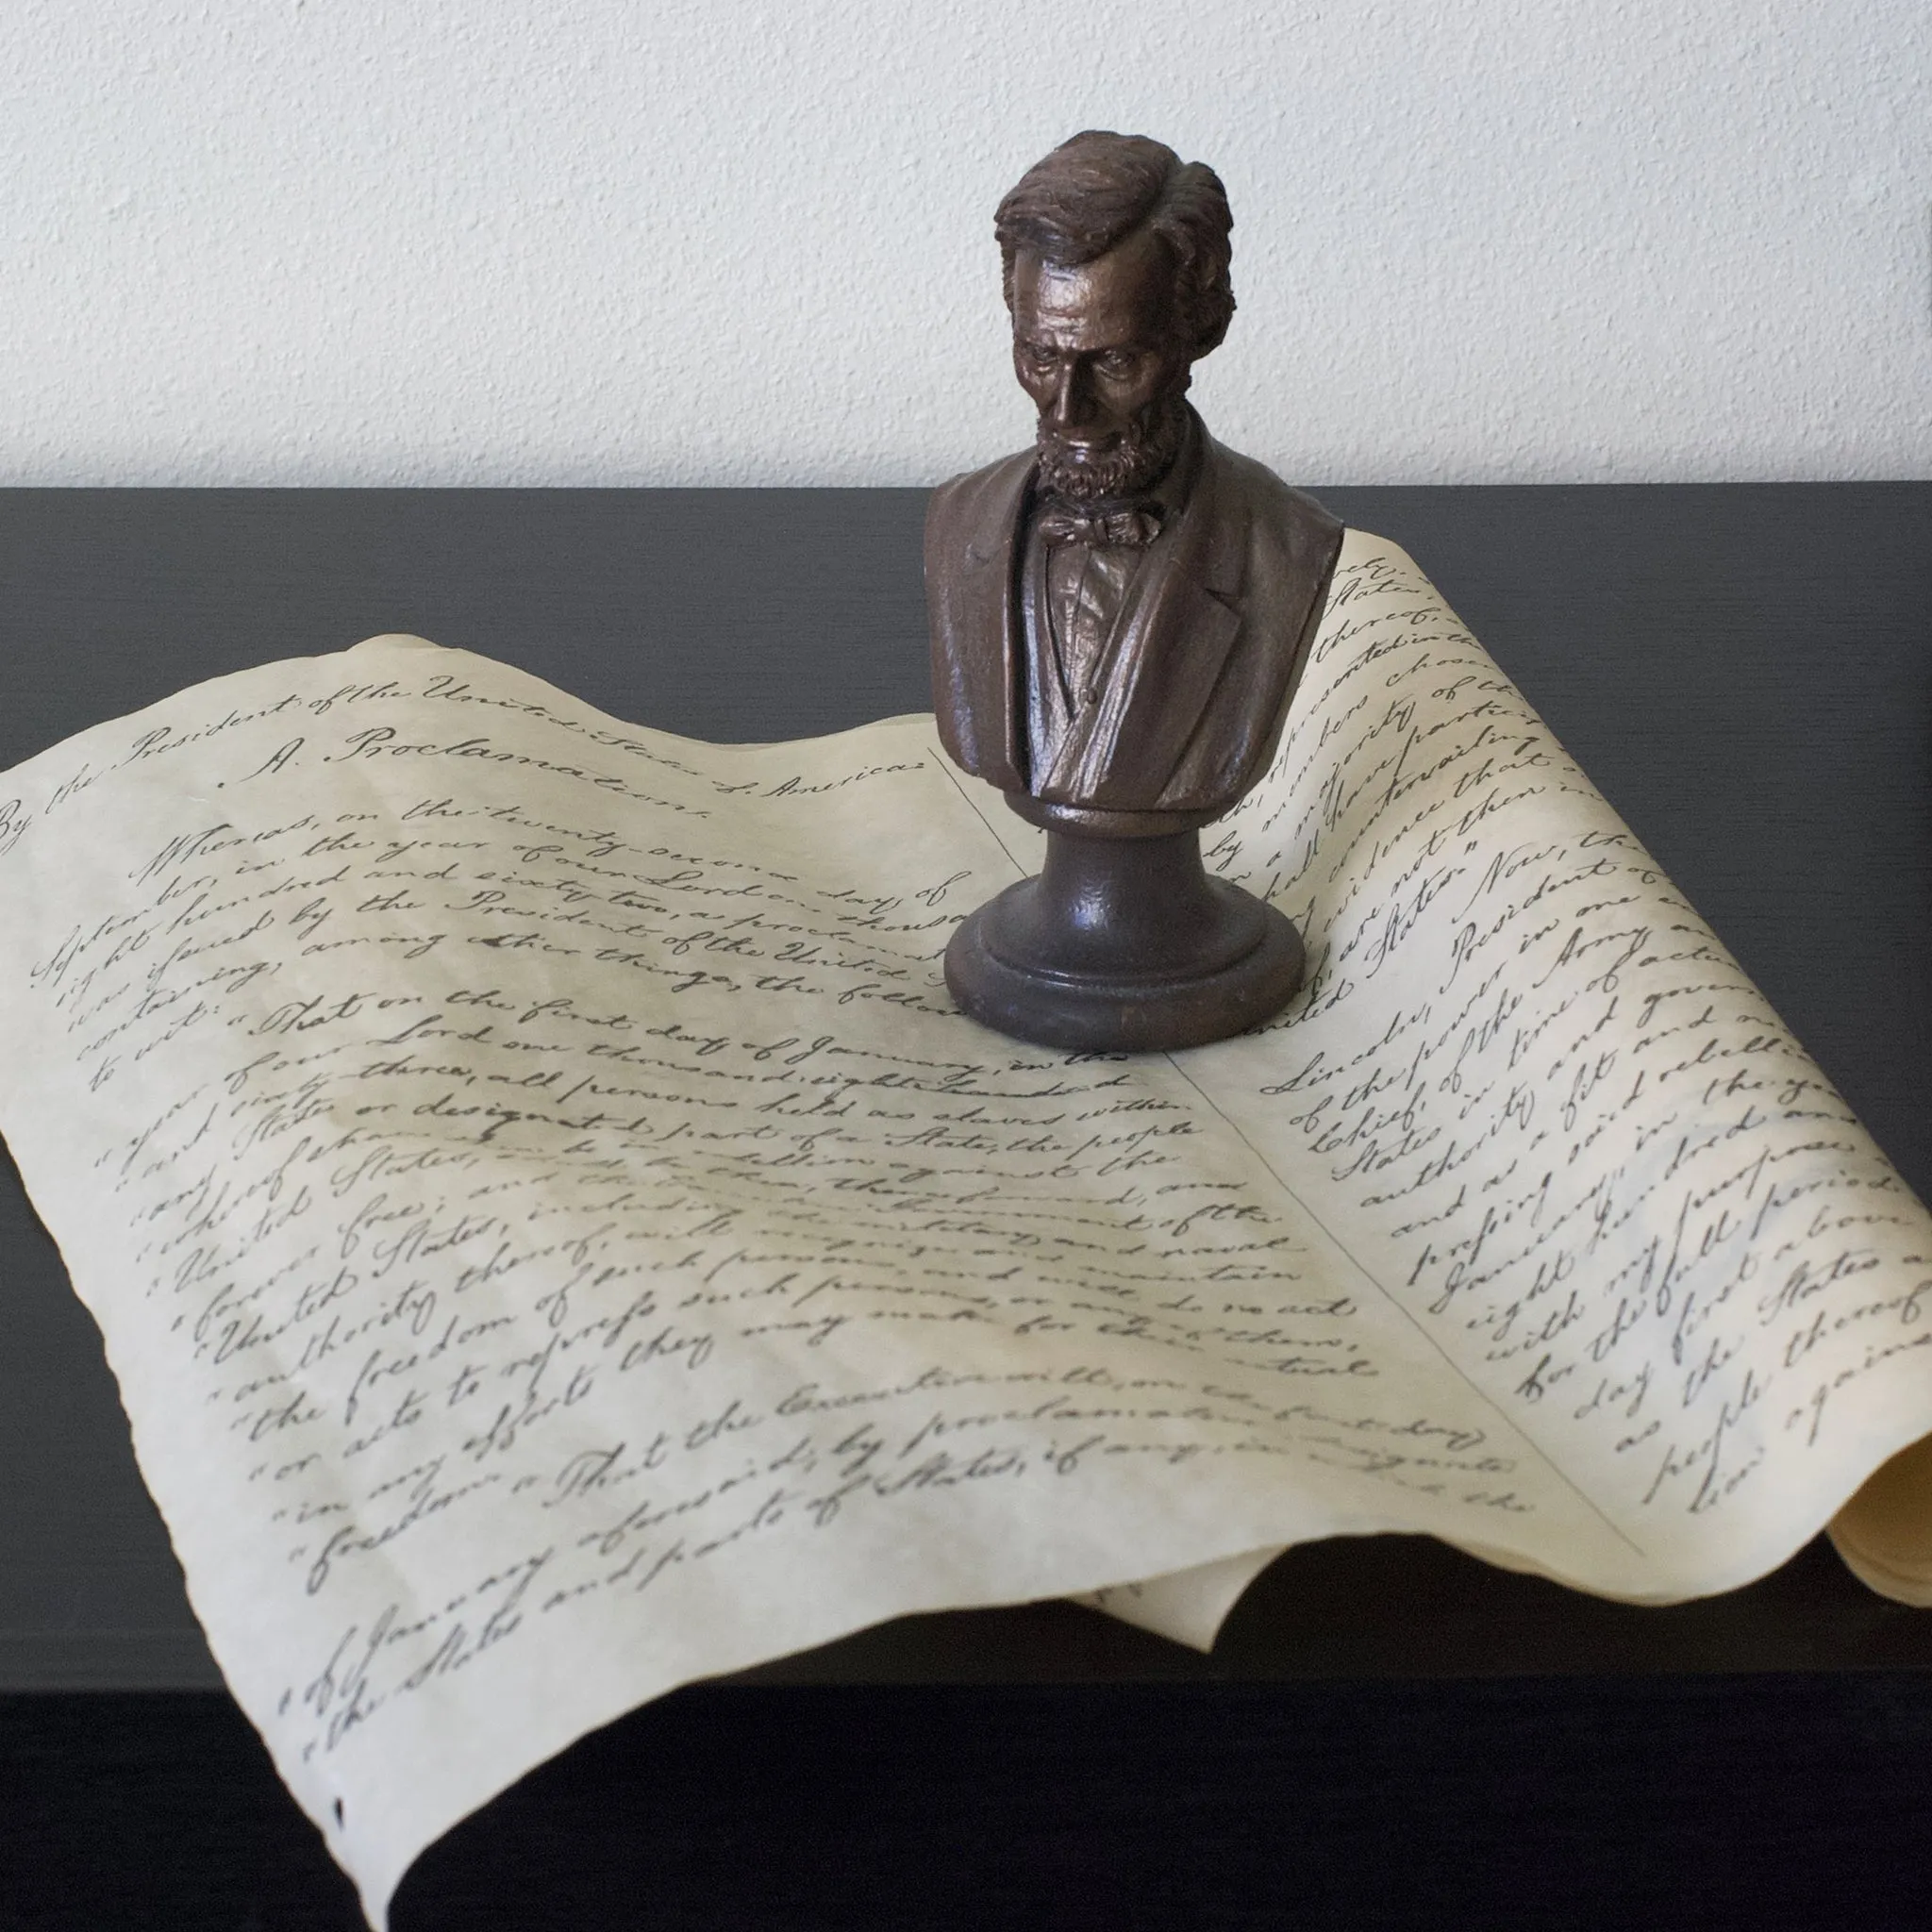 By the President of the United States of America:
A. Proclamation.
Whereas, on the twenty-second day of
September, in the year of our Lord one thousa
eight hundred and sixty-two, a proclamat
was issued by the President of the United S
containing, among other things, the follow
to wit:
"That on the first day of January, in the
"year of our Lord one thousand eight hundred
"and sixty-three, all persons held as slaves within
"any State or designated part of a State, the people
"whereof shall be in rebellion against the
"United States, shall be then, thenceforward, and
"forever free; and the Government of the
"United States, including the military and naval
"authority thereof, will recognize and maintain
"the freedom of such persons, and will do no act
"or acts to repress such persons, or any of them,
"in any efforts they may make for their actual
"freedom.
"That the Executive will, on the first day
"of January aforesaid, by proclamation, designate
"the States and parts of States, if any, in which the
States,
thereof,
represented in the
by members chosen
a majority of th
shall have particip
countervailing
evidence that
f, are not then in
United States."
Now, th
Lincoln, President of
of the power in me
Chief, of the Army an
States in time of actua
authority and govern
and as a fit and n
pressing said rebelli
January, in the ye
eight hundred and
with my purpose
for the full period
day first above
as the States a
people thereof
tion against